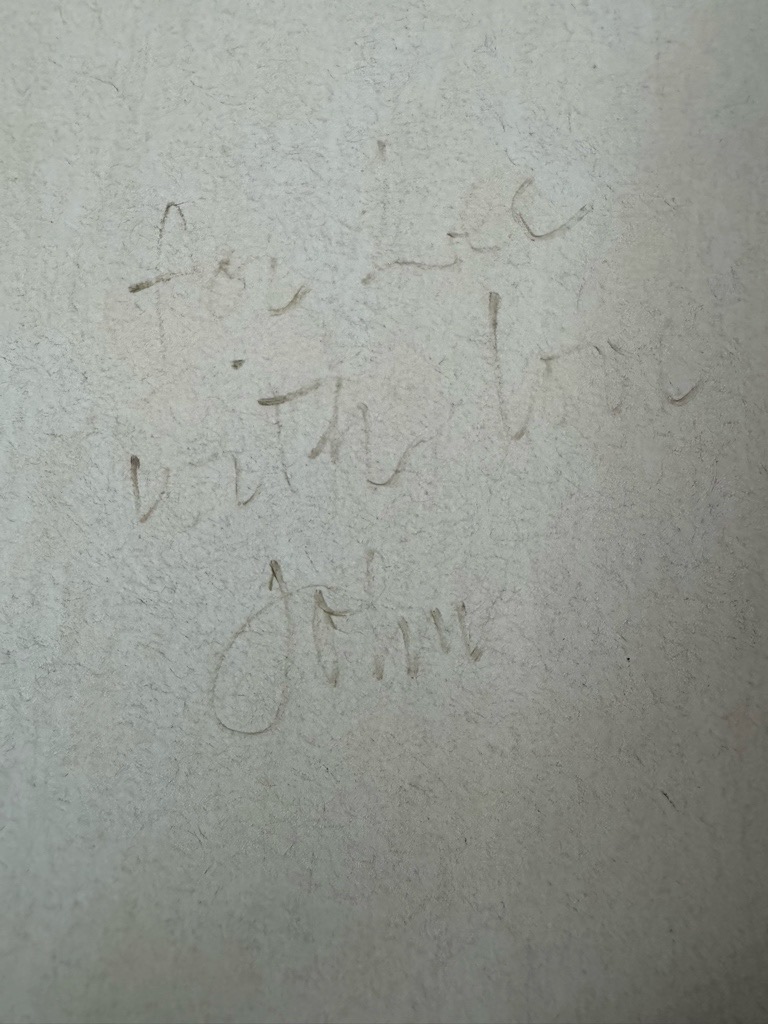 for
with love
John